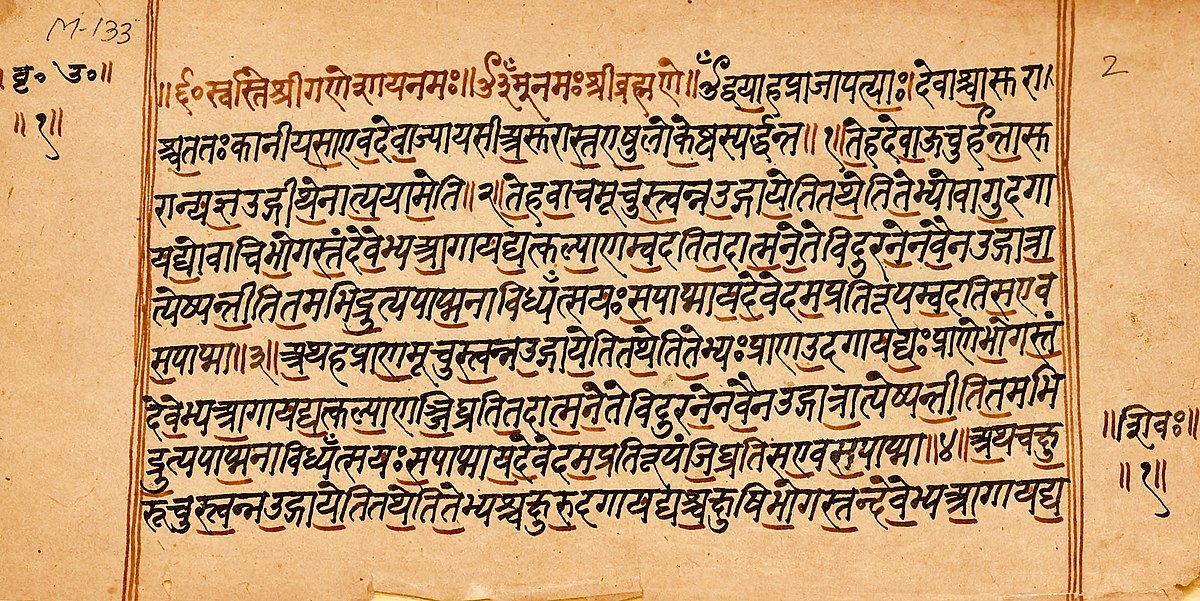 M-133
बृ॰ उ॰॥
॥१॥
2
॥ ६॰ स्वस्ति श्रीगणेशायनमः॥ ॐ नमः श्रीब्रह्मणे॥ ॐ द्वयाहप्राजापत्याः। देवाश्चासुरा।
श्चततःकानीयसाएवदेवाज्यायसाअसुरास्तएषुलोकेष्वस्पर्द्धन्त॥१॥तेहदेवाऊचुर्हन्तासु
रान्यज्ञउद्गीथेनात्ययामेति॥२॥तेहवाचमूचुस्त्वन्नउद्गायेतितथेतितेभ्योवागुदगा
यद्योवाचिभोगस्तंदेवेभ्यआगायद्यत्कल्याणम्वदतितदात्मनेतेविदुरनेनवैनउद्गात्रा
त्येष्यन्तीतितमभिद्रुत्यपाप्मनाविध्यँत्सयःसपाप्मायदेवेदमप्रतिरूपम्वदतिसएव
सपाप्मा॥३॥अथहप्राणमूचुस्त्वन्नउद्गायेतितथेतितेभ्यःप्राणउदगायद्यःप्राणेभोगस्तं
देवेभ्यआगायद्यत्कल्याणञ्जिघ्रतितदात्मनेतेविदुरनेनवैनउद्गात्रात्येष्यन्तीतितमभि
द्रुत्यपाप्मनाविध्यँत्सयःसपाप्मायदेवेदमप्रतिरूपंजिघ्रतिसएवसपाप्मा॥४॥अथचक्षु
रूचुस्त्वन्नउद्गायेतितथेतितेभ्यश्चक्षुरुदगायद्यश्चक्षुषिभोगस्तन्देवेभ्यआगायद्य
॥शिवः॥
॥१॥